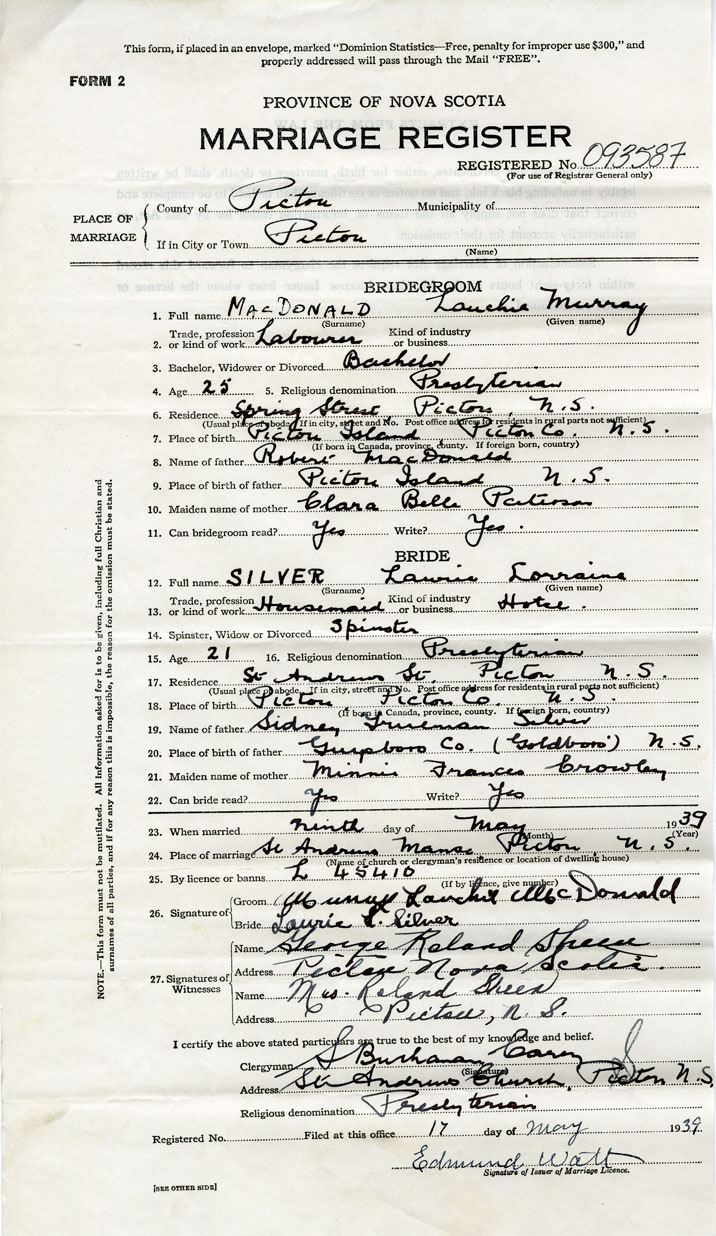 This form, if placed in an envelope, marked "Dominion Statistics—Free, penalty for improper use $300," and
properly addressed will pass through the Mail "FREE".
FORM 2
PROVINCE OF NOVA SCOTIA
MARRIAGE REGISTER
REGISTERED No. 093587
(For use of Registrar General only)
PLACE OF MARRIAGE
County of Pictou Municipality of
If in City or Town Pictou
(Name)
BRIDEGROOM
1. Full name MacDONALD Lauchie Murray
(Surname) (Given name)
2. Trade, profession or kind of work Labourer Kind of industry or business
3. Bachelor, Widower or Divorced Bachelor
4. Age 25 5. Religious denomination Presbyterian
6. Residence Spring Street, Pictou, N.S.
(Usual place of abode. If in city, street and No. Post office address for residents in rural parts not sufficient)
7. Place of birth Pictou Island Pictou Co. N.S.
(If born in Canada, province, county. If foreign born, country)
8. Name of father Robert MacDonald
9. Place of birth of father Pictou Island N.S.
10. Maiden name of mother Clara Belle Patterson
11. Can bridegroom read? Yes Write? Yes.
BRIDE
12. Full name SILVER Laurie Lorraine
(Surname) (Given name)
13. Trade, profession or kind of work Housemaid Kind of industry or business Hotel.
14. Spinster, Widow or Divorced Spinster
15. Age 21 16. Religious denomination Presbyterian
17. Residence St Andrews St. Pictou N.S.
(Usual place of abode. If in city, street and No. Post office address for residents in rural parts not sufficient)
18. Place of birth Pictou, Pictou Co. N.S.
(If born in Canada, province, county. If foreign born, country)
19. Name of father Sidney Trueman Silver
20. Place of birth of father Guysboro Co. (Goldboro) N.S.
21. Maiden name of mother Minnie Frances Crowley
22. Can bride read? Yes Write? Yes
23. When married ninth day of May 1939
(Month) (Year)
24. Place of marriage St Andrews Manse Pictou N.S.
(Name of church or clergyman's residence or location of dwelling house)
25. By licence or banns L 45410
(If by licence, give number)
26. Signature of
Groom Murray Lauchie MacDonald
Bride Laurie L. Silver
27. Signatures of Witnesses
Name George Roland Sheen
Address Pictou Nova Scotia.
Name Mrs. Roland Sheen
Address Pictou, N.S.
I certify the above stated particulars are true to the best of my knowledge and belief.
Clergyman S Buchanan Carey
(Signature)
Address St. Andrews Church, Pictou N.S.
Religious denomination Presbyterian
Registered No. Filed at this office 17 day of May 1939
Edmund Watt
Signature of Issuer of Marriage Licence.
[SEE OTHER SIDE]
NOTE.—This form must not be mutilated. All information asked for is to be given, including full Christian and
surnames of all parties, and if for any reason this is impossible, the reason for the omission must be stated.